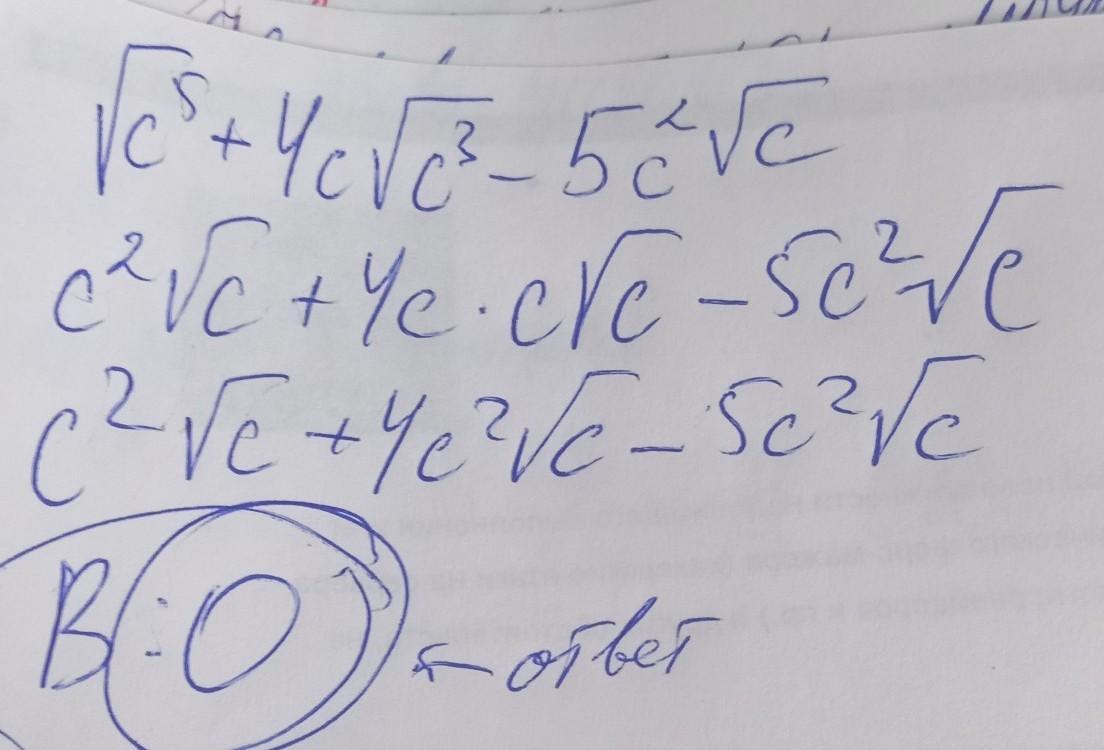 √c⁵ + 4c√c³ - 5c²√c
c²√c + 4c · c√c - 5c²√c
c²√c + 4c²√c - 5c²√c
В: 0 ← ответ